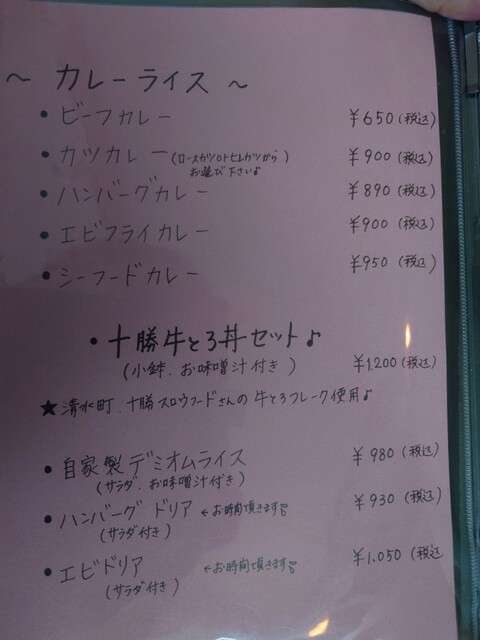 ～ カレーライス ～
• ビーフカレー ¥650(税込)
• カツカレー(ロースカツorヒレカツから) ¥900(税込)
お選び下さい♪
• ハンバーグカレー ¥890(税込)
• エビフライカレー ¥900(税込)
• シーフードカレー ¥950(税込)
• 十勝牛とろ丼セット♪
(小鉢、お味噌汁付き) ¥1,200(税込)
★清水町、十勝スロウフードさんの牛とろフレーク使用♪
• 自家製デミオムライス ¥980(税込)
(サラダ、お味噌汁付き)
• ハンバーグドリア ←お時間頂きます♪ ¥930(税込)
(サラダ付き)
• エビドリア ←お時間頂きます♪ ¥1,050(税込
(サラダ付き)